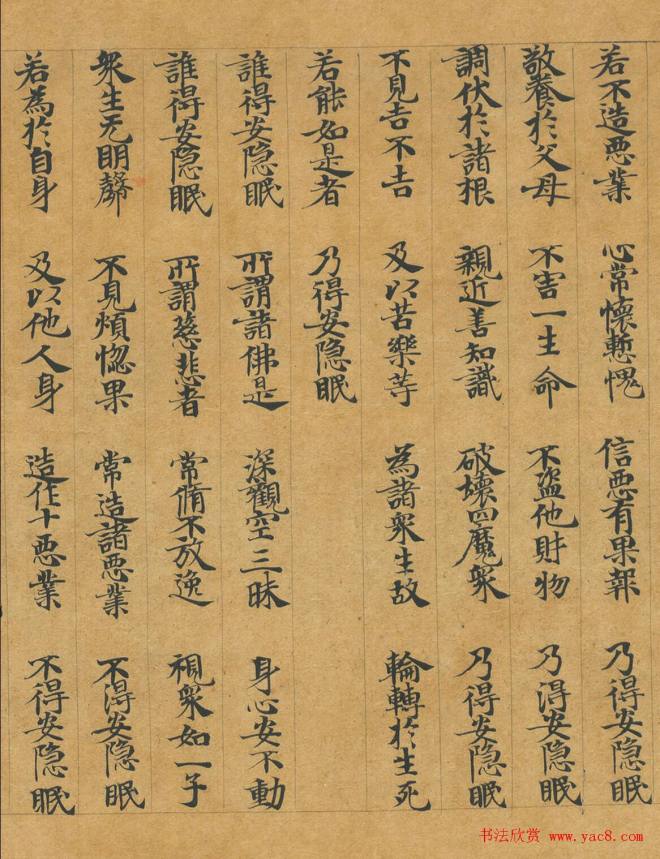 若不造恶業 心常懷慙愧 信恶有果報 乃得安隐眠
敬養於父母 不害一生命 不盜他財物 乃得安隐眠
調伏於諸根 親近善知識 破壞四魔衆 乃得安隐眠
不見吉不吉 及以苦樂等 為諸衆生故 輪轉於生死
若能如是者 乃得安隐眠
誰得安隐眠 所謂諸佛是 深觀空三昧 身心安不動
誰得安隐眠 所謂慈悲者 常脩不放逸 視衆如一子
衆生无明 不見煩惚果 常造諸恶業 不得安隐眠
若為於自身 及以他人身 造作十恶業 不得安隐眠
书法欣赏 www.yac8.com